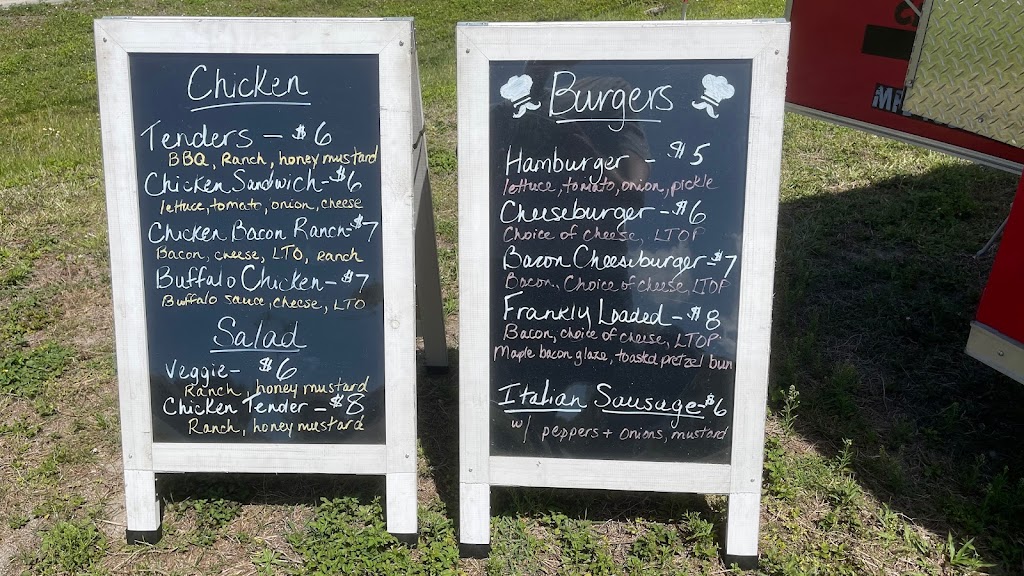 Chicken
Tenders – $6
BBQ, Ranch, honey mustard
Chicken Sandwich - $6
lettuce, tomato, onion, cheese
Chicken Bacon Ranch - $7
Bacon, cheese, LTO, ranch
Buffalo Chicken - $7
Buffalo sauce, cheese, LTO
Salad
Veggie - $6
Ranch, honey mustard
Chicken Tender - $8
Ranch, honey mustard
Burgers
Hamburger - $5
lettuce, tomato, onion, pickle
Cheeseburger - $6
Choice of cheese, LTOP
Bacon Cheeseburger - $7
Bacon, Choice of cheese, LTOP
Frankly Loaded - $8
Bacon, choice of cheese, LTOP
Maple bacon glaze, toasted pretzel bun
Italian Sausage - $6
w/ peppers + onions, mustard